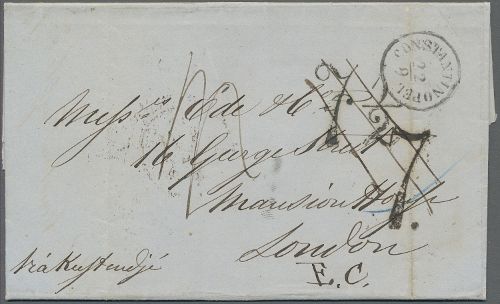 CONSTANTINOPEL
22
9
Mess.rs Ede & Co
16 George Street
Mansion House
London
E.C.
via Kustendjé
7